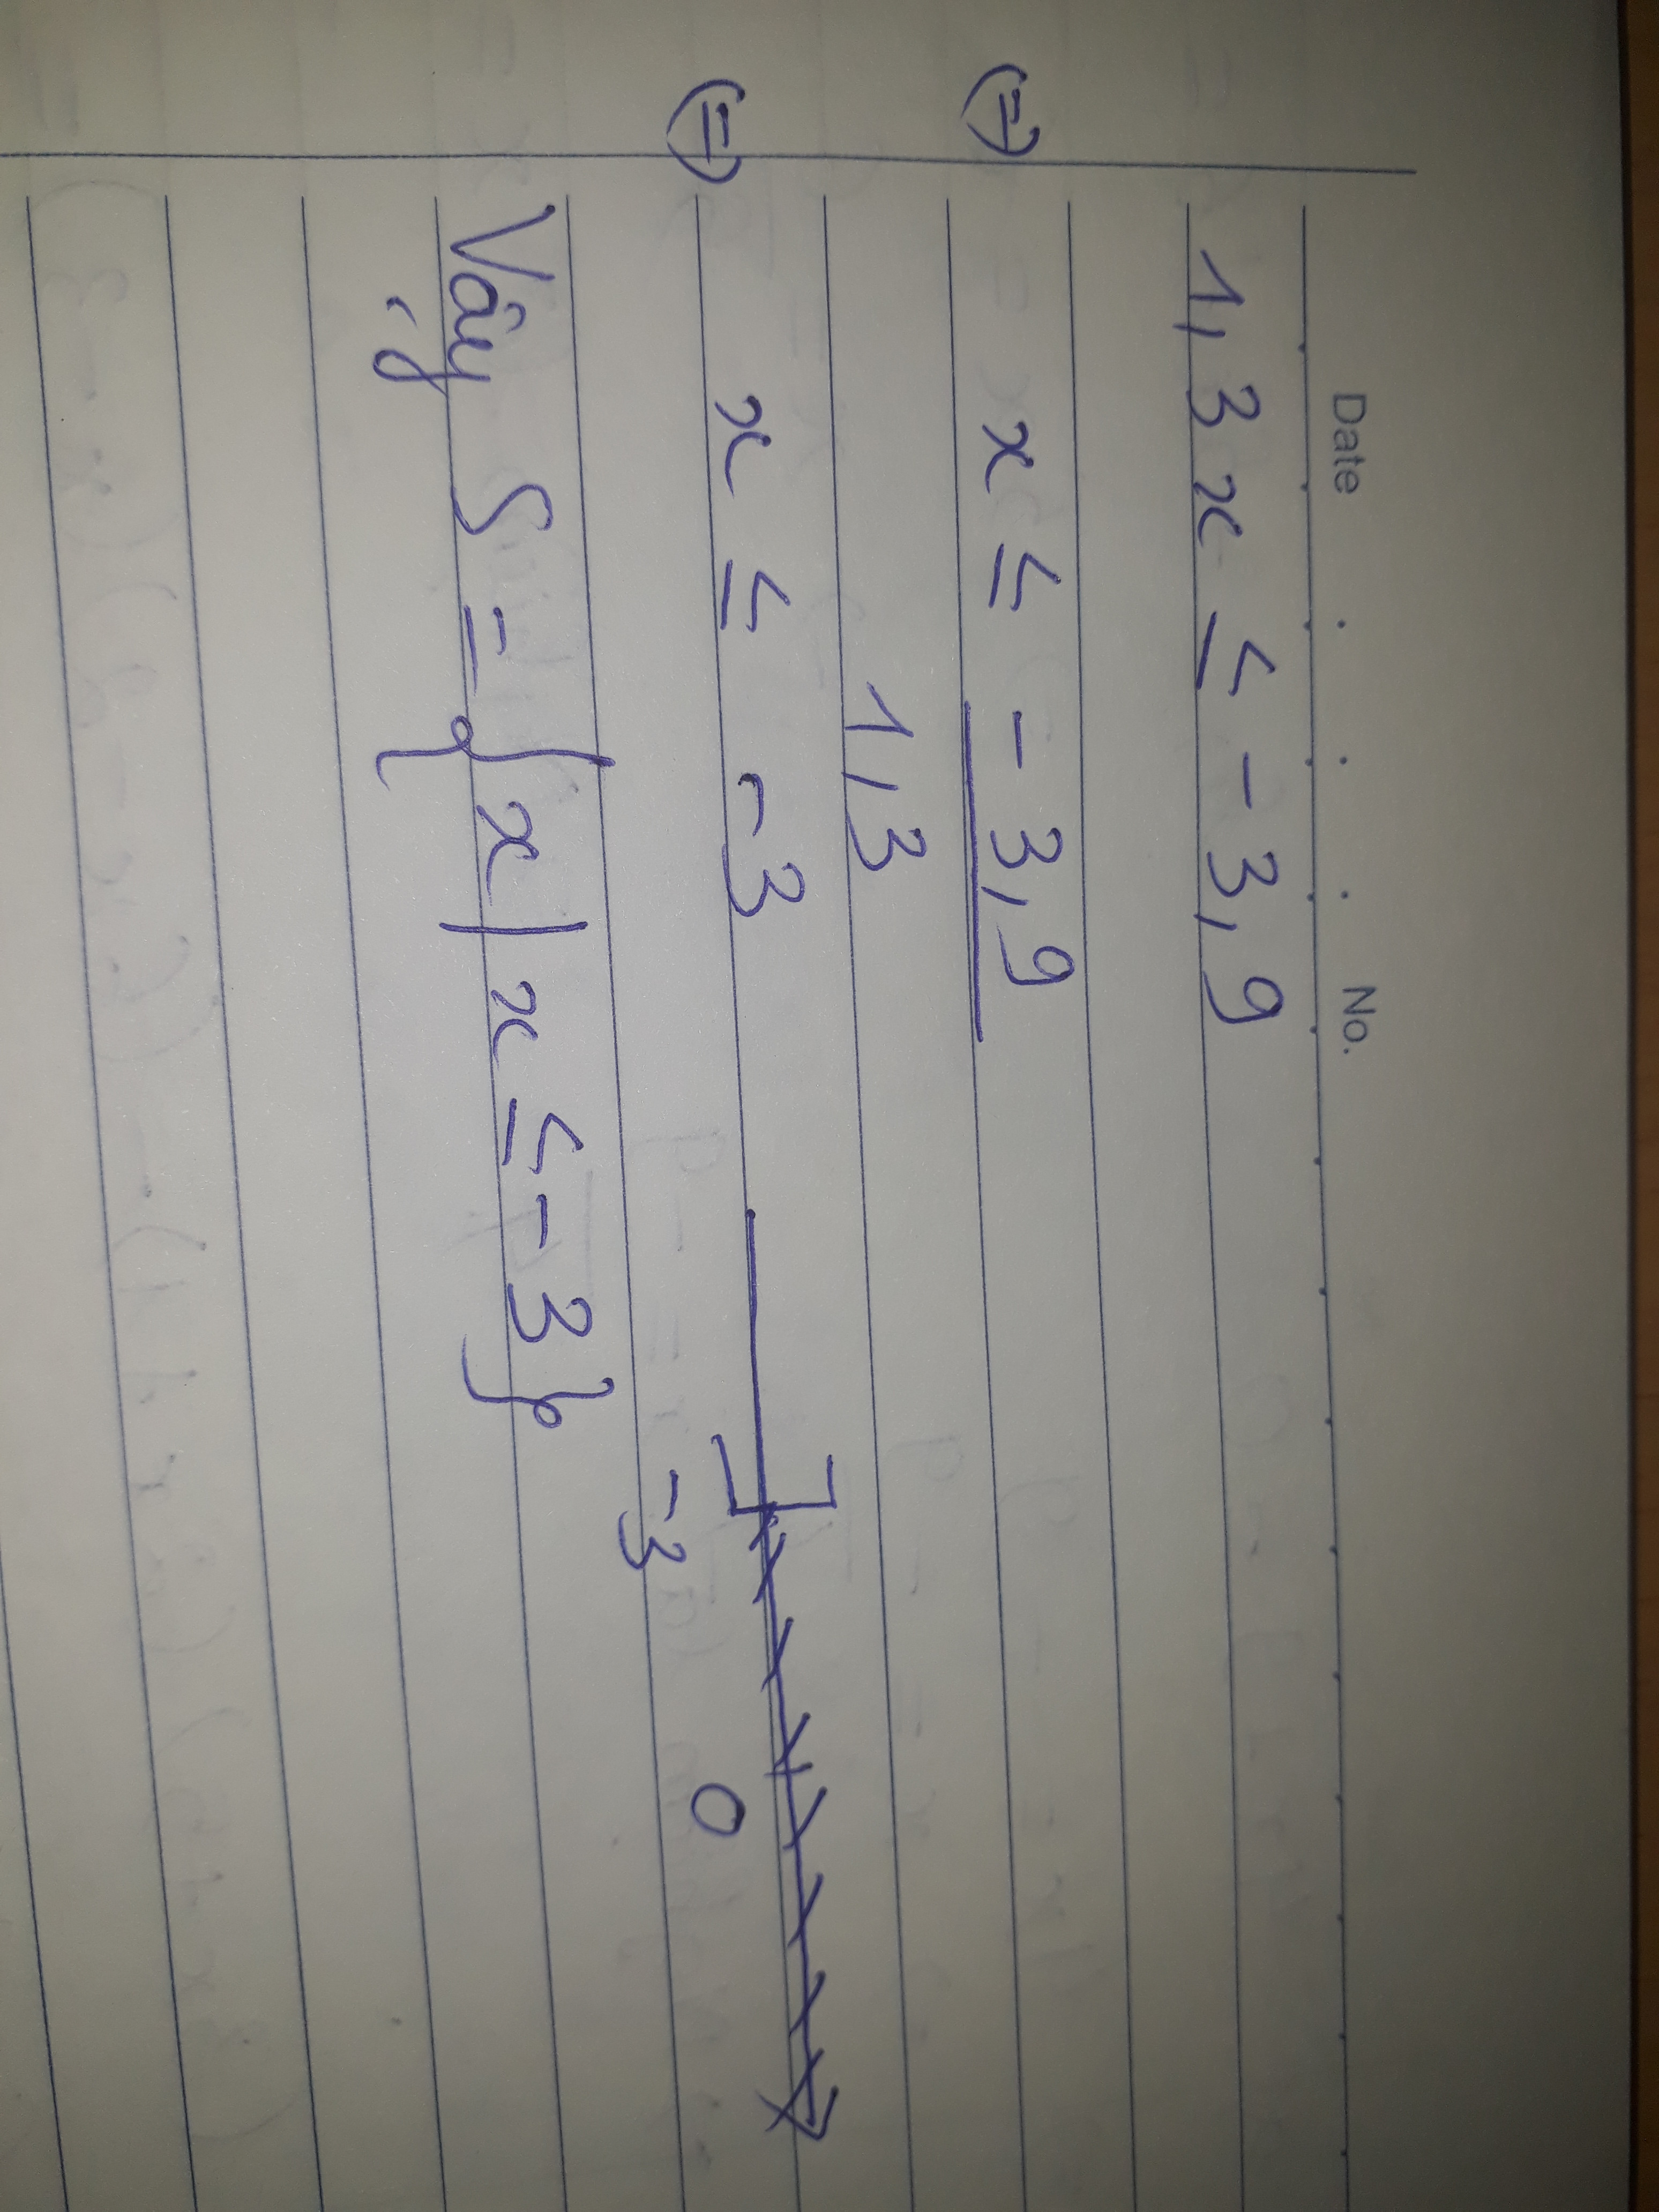 Date No.
1,3 x ≤ - 3,9
⇔ x ≤ - 3,9
1,3
⇔ x ≤ -3
-3 0
Vậy S = { x | x ≤ - 3 }